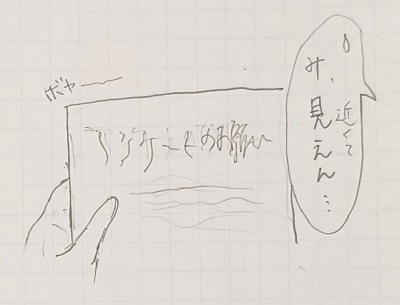 近くて
み、見えん…
ボヤー
アンケートのお願い